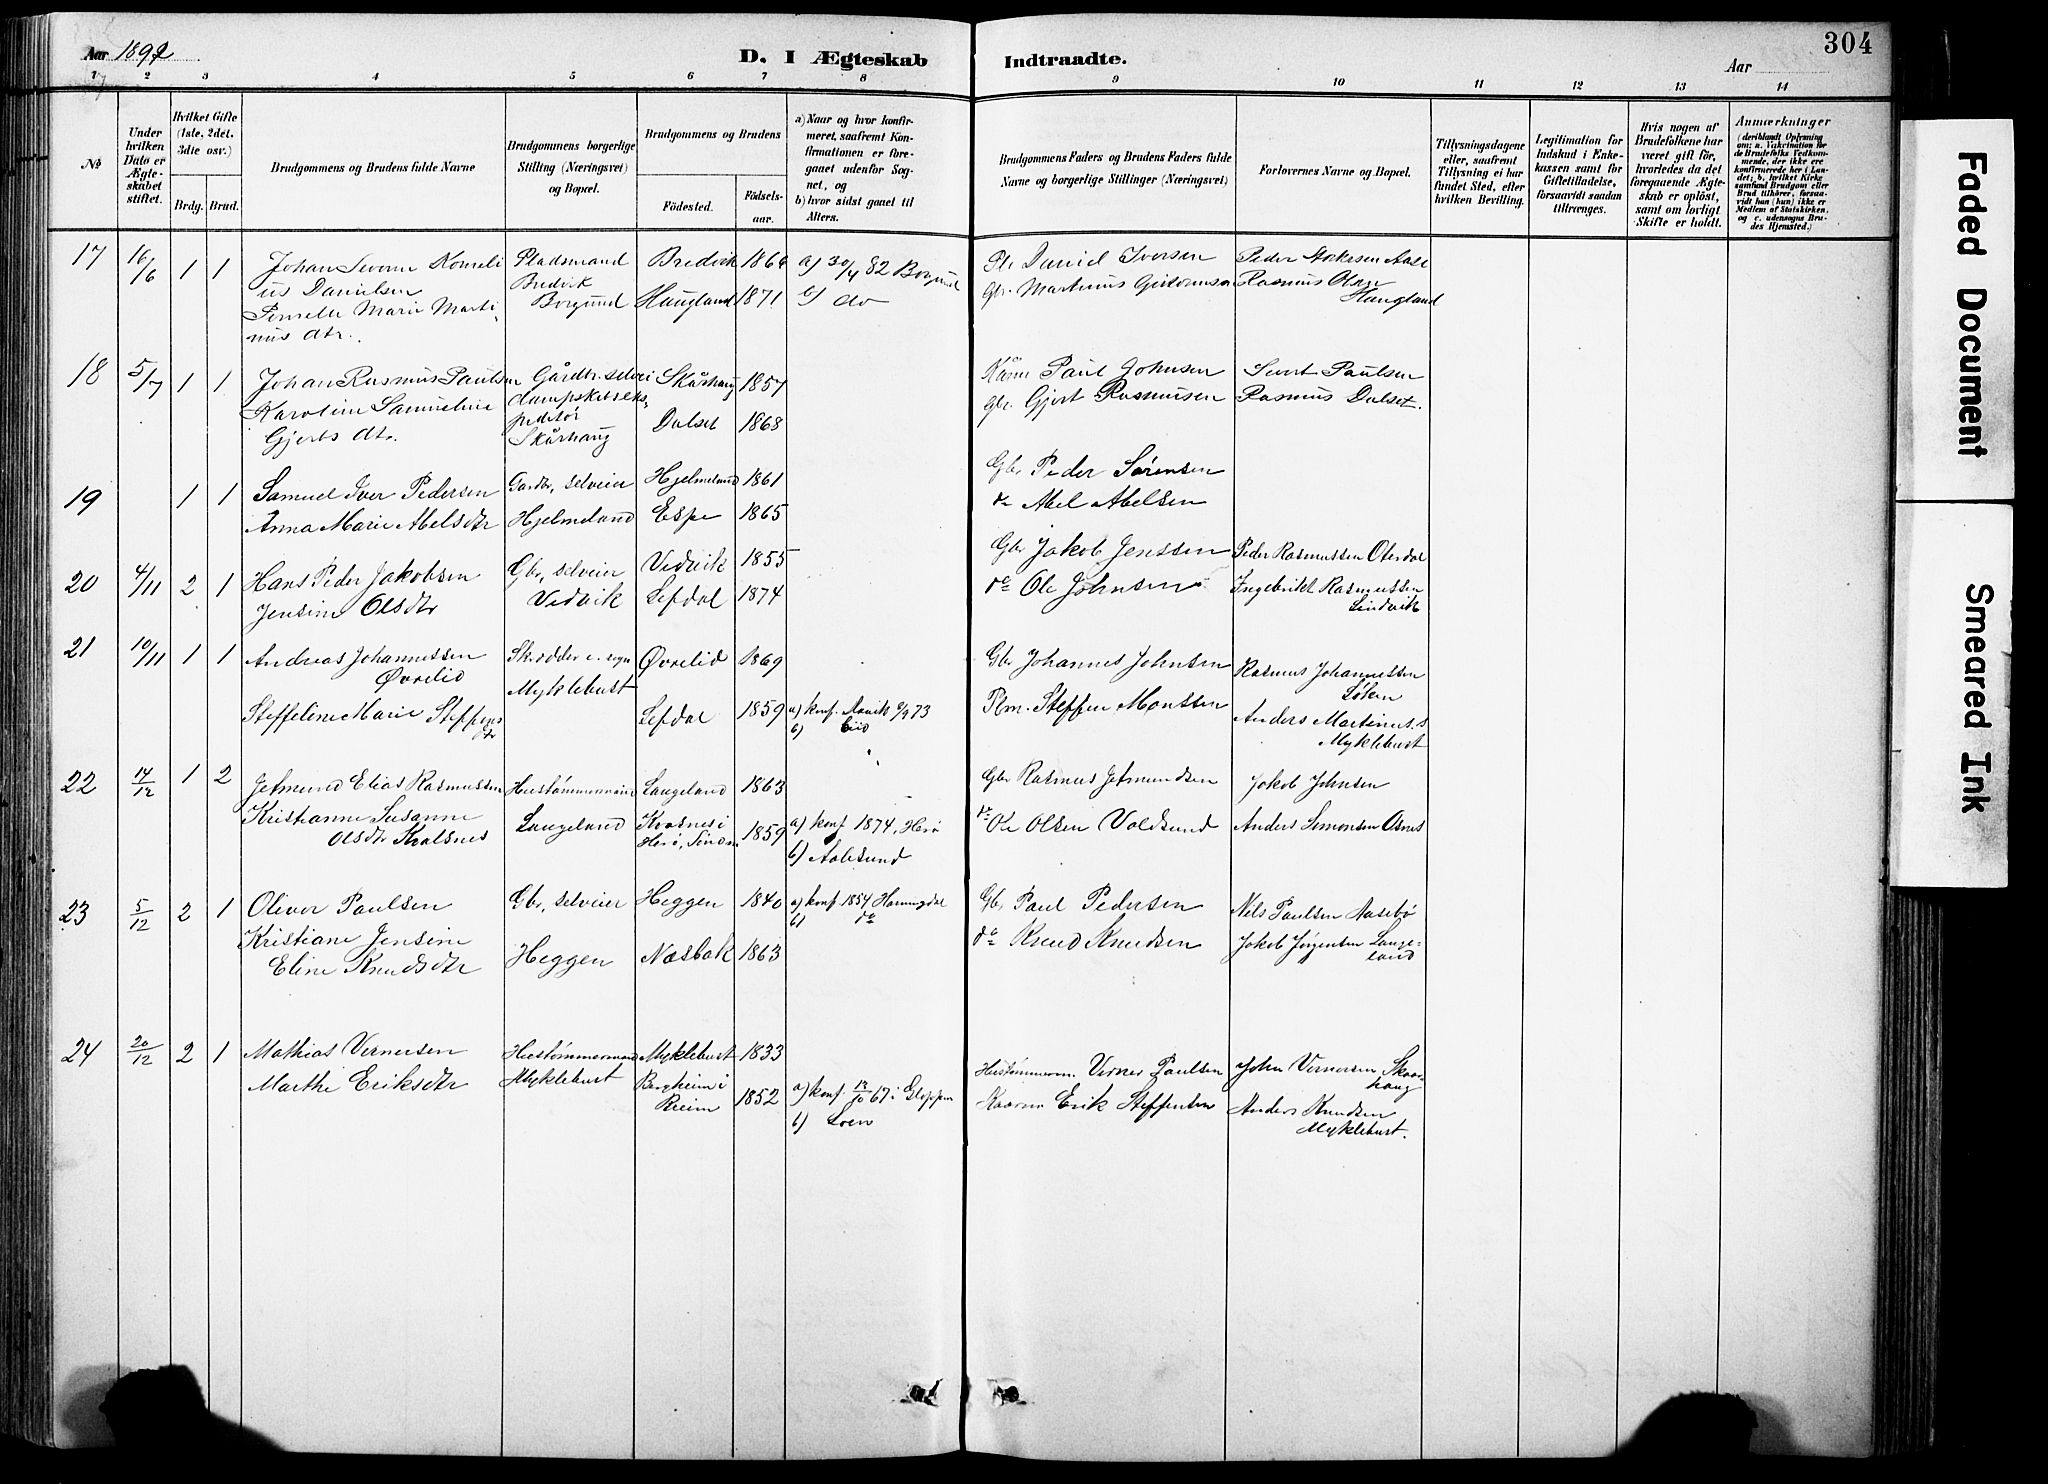 Aar 1892
D. I Ægteskab Indtraadte.
Aar
304
1 2 3 4 5 6 7 8 9 10 11 12 13 14
No
Under hvilken Dato er Ægteskabet stiftet.
Hvilket Gifte (1ste, 2det, 3die osv.)
Brdg. Brud.
Brudgommens og Brudens fulde Navne
Brudgommens borgerlige Stilling (Næringsvei) og Bopæl.
Brudgommens og Brudens
Fødested. Fødselsaar.
a) Naar og hvor konfirmeret, saafremt Konfirmationen er foregaaet udenfor Sognet, og
b) hvor sidst gaaet til Alters.
Brudgommens Faders og Brudens Faders fulde Navne og borgerlige Stillinger (Næringsvei)
Forlovernes Navne og Bopæl.
Tillysningsdagene eller, saafremt Tillysning ei har fundet Sted, efter hvilken Bevilling.
Legitimation for Indskud i Enkekassen samt for Giftetilladelse, forsaavidt saadan tiltrænges.
Hvis nogen af Brudefolkene har været gift før, hvorledes da det foregaaende Ægteskab er opløst, samt om lovligt Skifte er holdt.
Anmærkninger
(deriblandt Oplysning om: a. Vakcination for de Brudefolks Vedkommende, der ikke ere konfirmerede her i Landet; b. hvilket Kirkesamfund Brudgom eller Brud tilhører, forsaavidt han (hun) ikke er Medlem af Statskirken, og c. udensogns Brudes Hjemsted.)
17 16/6 1 1 Johan Severin Korneli
us Danielsen
Pernelle Marie Marti
nus dtr.
Pladsmand
Bredvik
Borgund
Bredvik 1866
Haugland 1871
a) 30/4 82 Borgund
b) do
Pl. Daniel Iversen
Gbr. Martinus
Peder
Rasmus
Haugland
18 5/7 1 1 Johan Rasmus Paulsen
Karoline Samueline
Gjerts dtr.
Gårdbr. selvei
dampskibseks
peditør
Skårhaug
Skårhaug 1857
Dalset 1868
Kårm Paul Johnsen
Gbr. Gjert Rasmussen
Sivert Paulsen
Rasmus Dalset.
19 1 1 Samuel Iver Pedersen
Anna Marie Abelsdtr
Gardbr, selveier
Hjelmeland
Hjelmeland 1861
Espe 1865
Gbr Peder Sørensen
do Abel Abelsen
20 4/11 2 1 Hans Peder Jakobsen
Jensine Olsdtr
Gbr, selveier
Vedvik
Vedvik 1855
Lefdal 1874
Gbr Jakob Jenssen
do Ole Johnsen
Peder Rasmussen Oterdal
Ingebrikt Rasmussen
Lindvik
21 10/11 1 1 Andreas Johannessen
Øvrelid
Steffeline Marie Steffens
dtr
Skrædder
Myklebust
Øvrelid 1869
Lefdal 1859
a) konf. Davik 73
b) Eid
Gbr Johannes Johnsen
Plm. Steffen Monssen
Rasmus Johannessen
Løken
Anders Martinus.s
Myklebust
22 14/12 1 2 Jetmund Elias Rasmussen
Kristianne Susanne
Olsdtr Kvalsnes
Hustømmermand
Langeland
Langeland 1863
Kvalsnes i
Herø, Sundm 1859
a) konf 1874, Herø
b) Aalesund
Gbr Rasmus Jetmundsen
do Ole Olsen Voldsund
Jakob Johnsen
Anders Simonsen Osnes
23 5/12 2 1 Oliver Paulsen
Kristiane Jensine
Eline Knudsdtr
Gbr, selveier
Heggen
Heggen 1840
Næsbak 1863
a) konf 1854 Hornindal
b) do
Gbr Paul Pedersen
do Knud Knudsen
Nils Paulsen Aasebø
Jakob Jørgensen Lange-
land
24 20/12 2 1 Mathias Vernersen
Marthe Eriksdtr
Hustømmermand
Myklebust
Myklebust 1833
Bergheim i
1852
a) konf. 13/10 67 i Gloppen
b) Loen
Hustømmerm. Verner Paulsen
Kaarm Erik Steffensen
John Vernersen Skaar-
haug
Anders Knudsen
Myklebust.
Faded Document
Smeared Ink